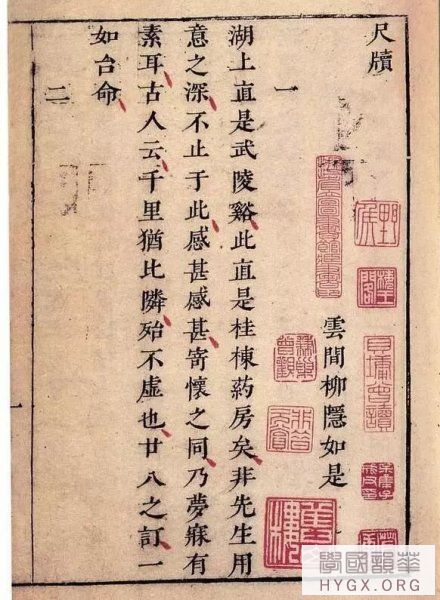 尺牘
雲間柳隱如是
一
湖上直是武陵谿此直是桂棟药房矣非先生用
意之深不止于此感甚感甚寄懷之同乃夢寐有
素耳古人云千里猶比隣殆不虛也廿八之訂一
如台命
二
一
華韻國學
HYGX.ORG